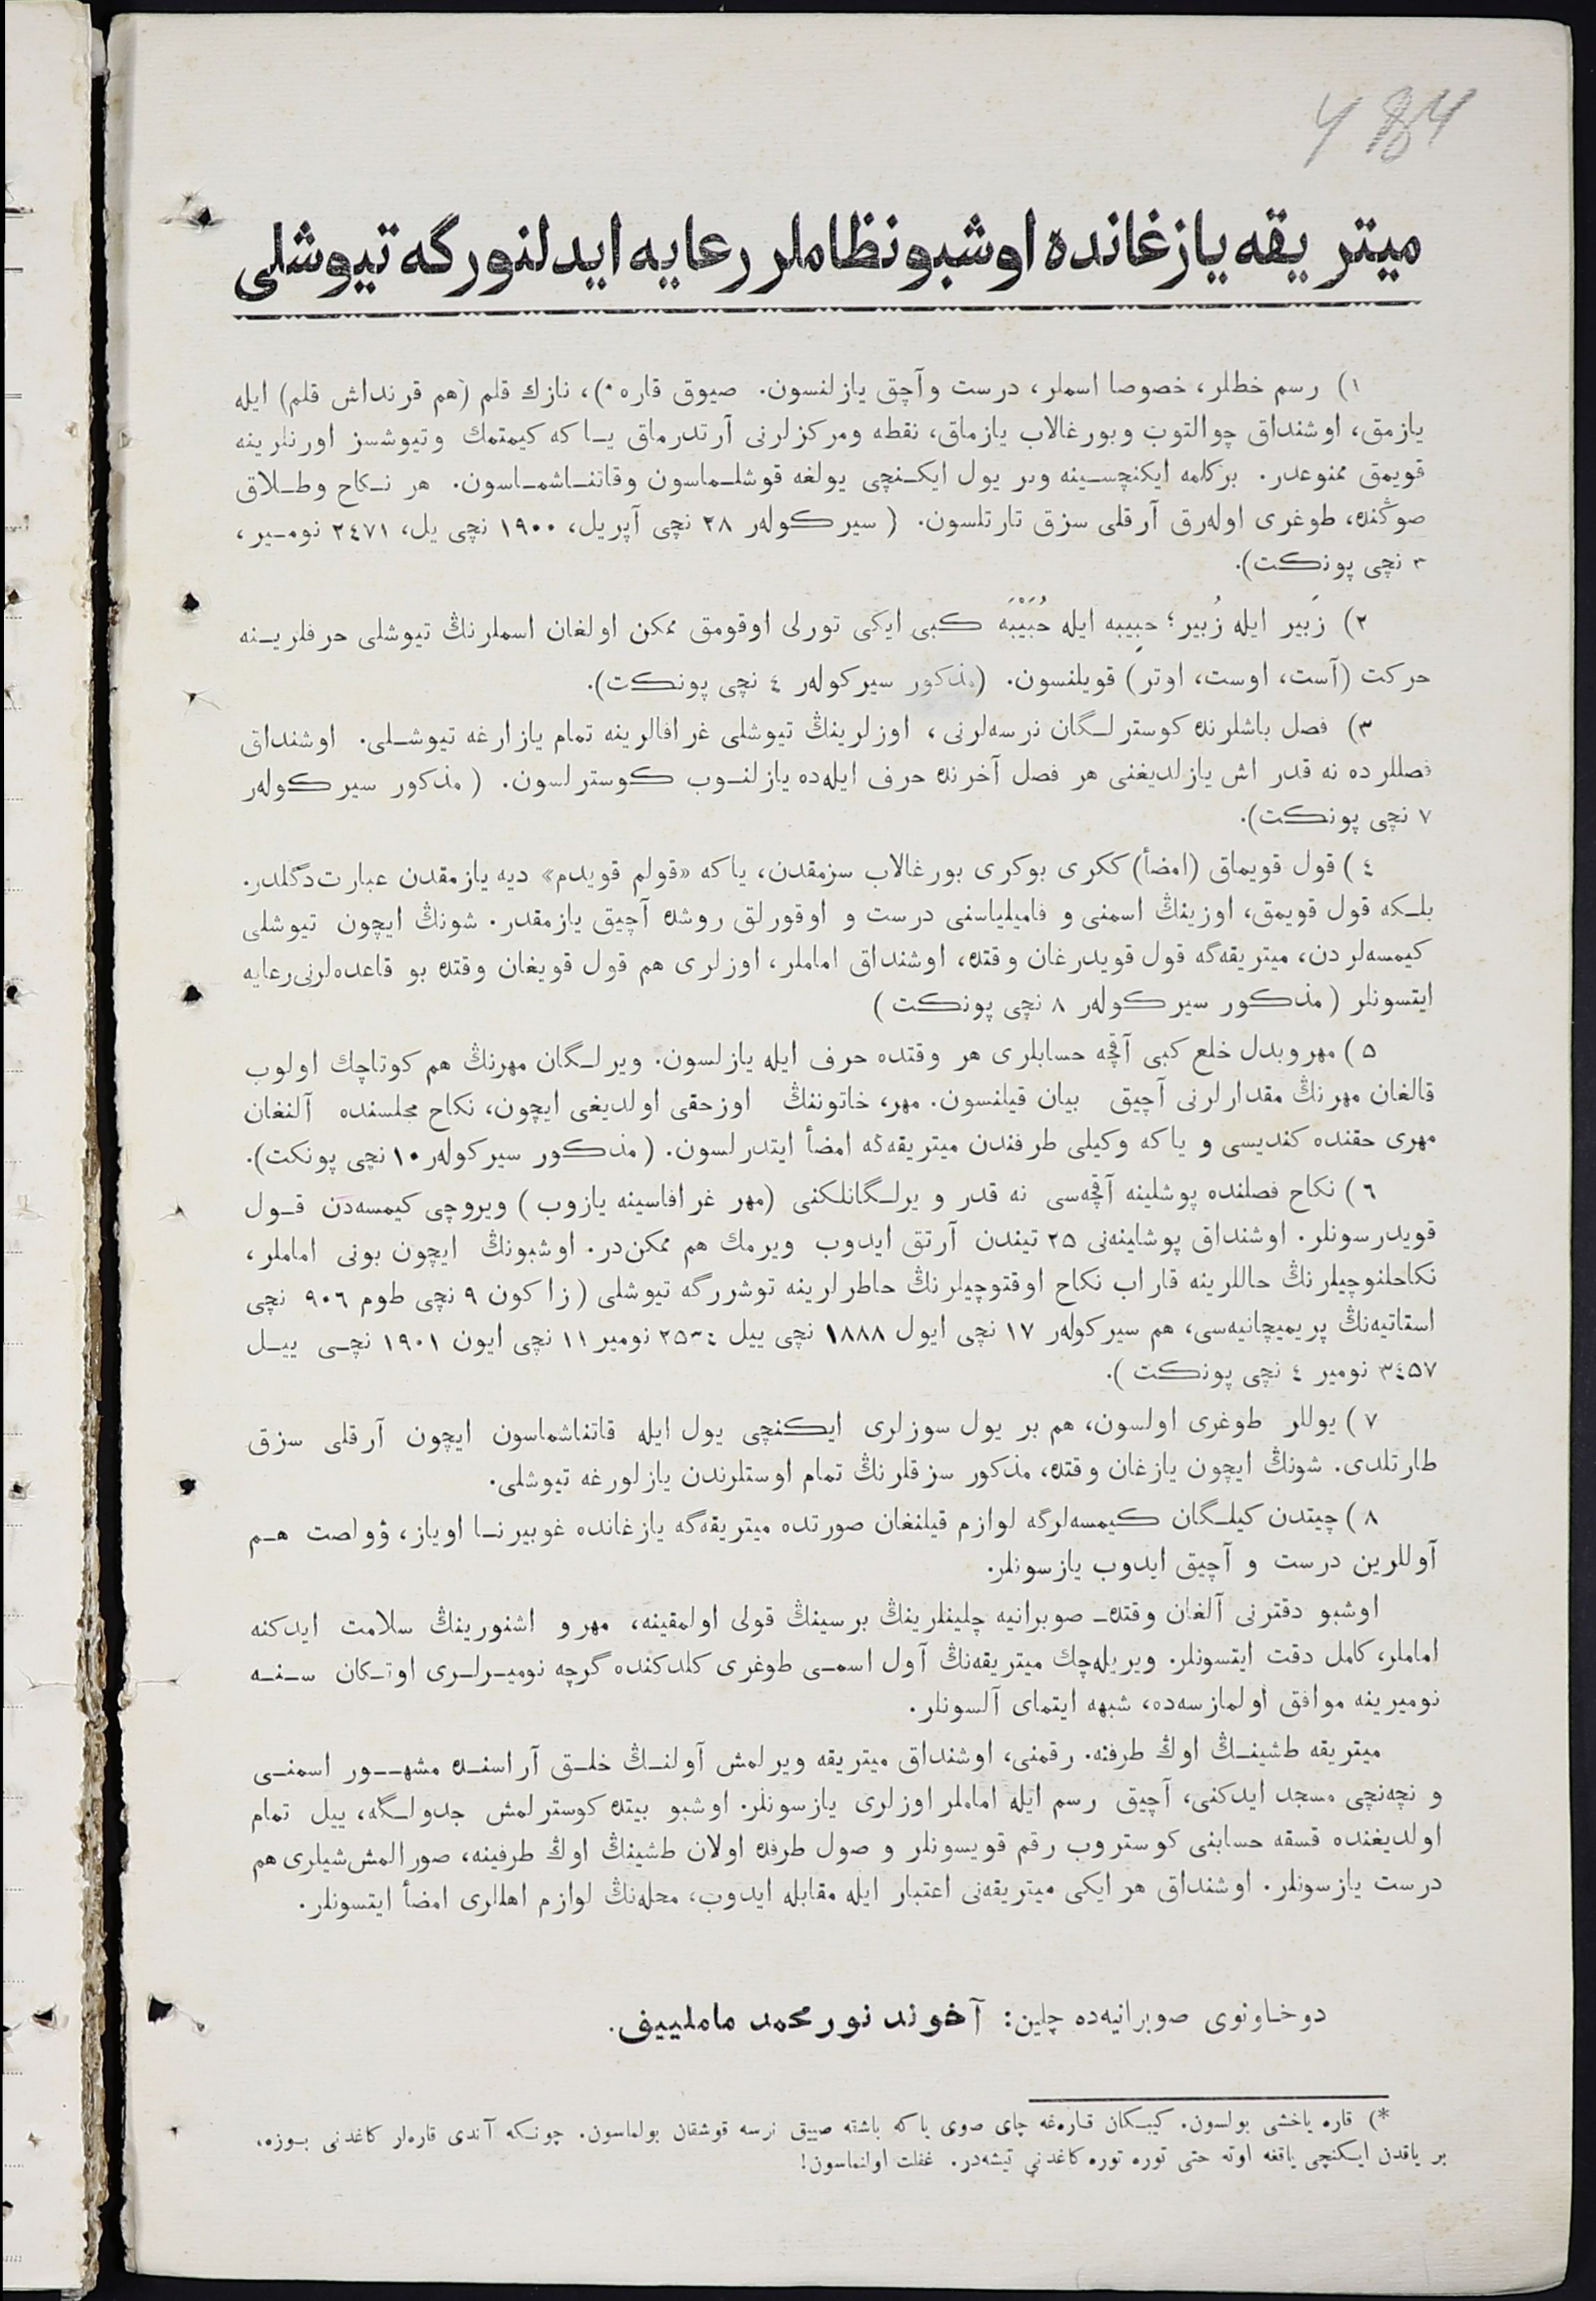 484
ميتريقه يازغانده اوشبو نظاملر رعايه ايدلنورگه تيوشلى
١) رسم خطلر، خصوصا اسملر، درست وآچق يازلنسون. صيوق قاره*)، نازك قلم (هم قرنداش قلم) ايله
يازمق، اوشنداق چوالتوب وبورغالاب يازماق، نقطه ومركزلرنى آرتدرماق يـاكه كيمتمك وتيوشسز اورنلرينه
قويمق ممنوعدر. بركلمه ايكنچسـينه وبر يول ايكـنچى يولغه قوشلـماسون وقاتنـاشمـاسون. هر نـكاح وطـلاق
صوڭنده، طوغرى اوله‌رق آرقلى سزق تارتلسون. (سيركوله‌ر ٢٨ نچى آپريل، ١٩٠٠ نچى يل، ٢٤٧١ نومـير،
٣ نچى پونكت).
٢) زَبير ايله زُبير؛ حبِيبه ايله حُبَيْبَه كبى ايكى تورلى اوقومق ممكن اولغان اسملرنڭ تيوشلى حرفلريـنه
حركت (آست، اوست، اوتر) قويلنسون. (مذكور سيركوله‌ر ٤ نچى پونكت).
٣) فصل باشلرنده كوسترلـگان نرسه‌لرنى، اوزلرينڭ تيوشلى غرافالرينه تمام يازارغه تيوشـلى. اوشنداق
فصللرده نه قدر اش يازلديغنى هر فصل آخرنده حرف ايله‌ده يازلنـوب كوسترلسون. (مذكور سيركوله‌ر
٧ نچى پونكت).
٤) قول قويماق (امضأ) ككرى بوكرى بورغالاب سزمقدن، ياكه «قولم قويدم» ديه يازمقدن عبارت‌دگلدر.
بلـكه قول قويمق، اوزينڭ اسمنى و فاميلياسنى درست و اوقورلق روشده آچيق يازمقدر. شونڭ ايچون تيوشلى
كيمسه‌لردن، ميتريقه‌گه قول قويدرغان وقتده، اوشنداق اماملر، اوزلرى هم قول قويغان وقتده بو قاعده‌لرنى‌رعايه
ايتسونلر (مذكور سيركوله‌ر ٨ نچى پونكت)
٥) مهروبدل خلع كبى آقچه حسابلرى هر وقتده حرف ايله يازلسون. ويرلـگان مهرنڭ هم كوتاچك اولوب
قالغان مهرنڭ مقدارلرنى آچيق بيان قيلنسون. مهر، خاتوننڭ اوزحقى اولديغى ايچون، نكاح مجلسنده آلنغان
مهرى حقنده كنديسى و ياكه وكيلى طرفندن ميتريقه‌گه امضأ ايتدرلسون. (مذكور سيركوله‌ر ١٠ نچى پونكت).
٦) نكاح فصلنده پوشلينه آقچه‌سى نه قدر و يرلـگانلكنى (مهر غرافاسينه يازوب) ويروچى كيمسه‌دن قـول
قويدرسونلر. اوشنداق پوشلينه‌نى ٢٥ تيندن آرتق ايدوب ويرمك هم ممكن‌در. اوشبونڭ ايچون بونى اماملر،
نكاحلنوچيلرنڭ حاللرينه قاراب نكاح اوقتوچيلرنڭ خاطرلرينه توشررگه تيوشلى (زاكون ٩ نچى طوم ٩٠٦ نچى
استاتيه‌نڭ پريميچانيه‌سى، هم سيركوله‌ر ١٧ نچى ايول ١٨٨٨ نچى ييل ٢٥٣٤ نومير ١١ نچى ايون ١٩٠١ نچـى ييـل
٣٤٥٧ نومير ٤ نچى پونكت).
٧) يوللر طوغرى اولسون، هم بر يول سوزلرى ايكنچى يول ايله قاتناشماسون ايچون آرقلى سزق
طارتلدى. شونڭ ايچون يازغان وقتده، مذكور سزقلرنڭ تمام اوستلرندن يازلورغه تيوشلى.
٨) چيتدن كيلـگان كيمسه‌لرگه لوازم قيلنغان صورتده ميتريقه‌گه يازغانده غوبيرنـا اوياز، ؤولصت هـم
آوللرين درست و آچيق ايدوب يازسونلر.
اوشبو دفترنى آلغان وقتده‌ـ صوبرانيه چلينلرينڭ برسينڭ قولى اولمقينه، مهرو اشنورينڭ سلامت ايدكنه
اماملر، كامل دقت ايتسونلر. ويريله‌چك ميتريقه‌نڭ آول اسمـى طوغرى كلدكنده گرچه نوميـرلـرى اوتـكان سـنـه
نوميرينه موافق اولمازسه‌ده، شبهه ايتماى آلسونلر.
ميتريقه طشينـڭ اوڭ طرفنه. رقمنى، اوشنداق ميتريقه ويرلمش آولنـڭ خلـق آراسنـده مشهــور اسمنـى
و نچه‌نچى مسجد ايدكنى، آچيق رسم ايله اماملر اوزلرى يازسونلر. اوشبو بيتده كوسترلمش جدولـگه، ييل تمام
اولديغنده قسقه حسابنى كوستروب رقم قويسونلر و صول طرفده اولان طشينڭ اوڭ طرفينه، صورالمش‌شيلرى هم
درست يازسونلر. اوشنداق هر ايكى ميتريقه‌نى اعتبار ايله مقابله ايدوب، محله‌نڭ لوازم اهللرى امضأ ايتسونلر.
دوخاونوى صوبرانيه‌ده چلين: آخوند نور محمد ماملييف.
*) قاره ياخشى بولسون. كيبـكان قاره‌غه چاى صوى ياكه باشته صييق نرسه قوشقان بولماسون. چونـكه آندى قاره‌لر كاغدنى بـوزه،
بر ياقدن ايـكنچى ياقغه اوته حتى توره توره كاغدنى تيشه‌در. غفلت اولنماسون!